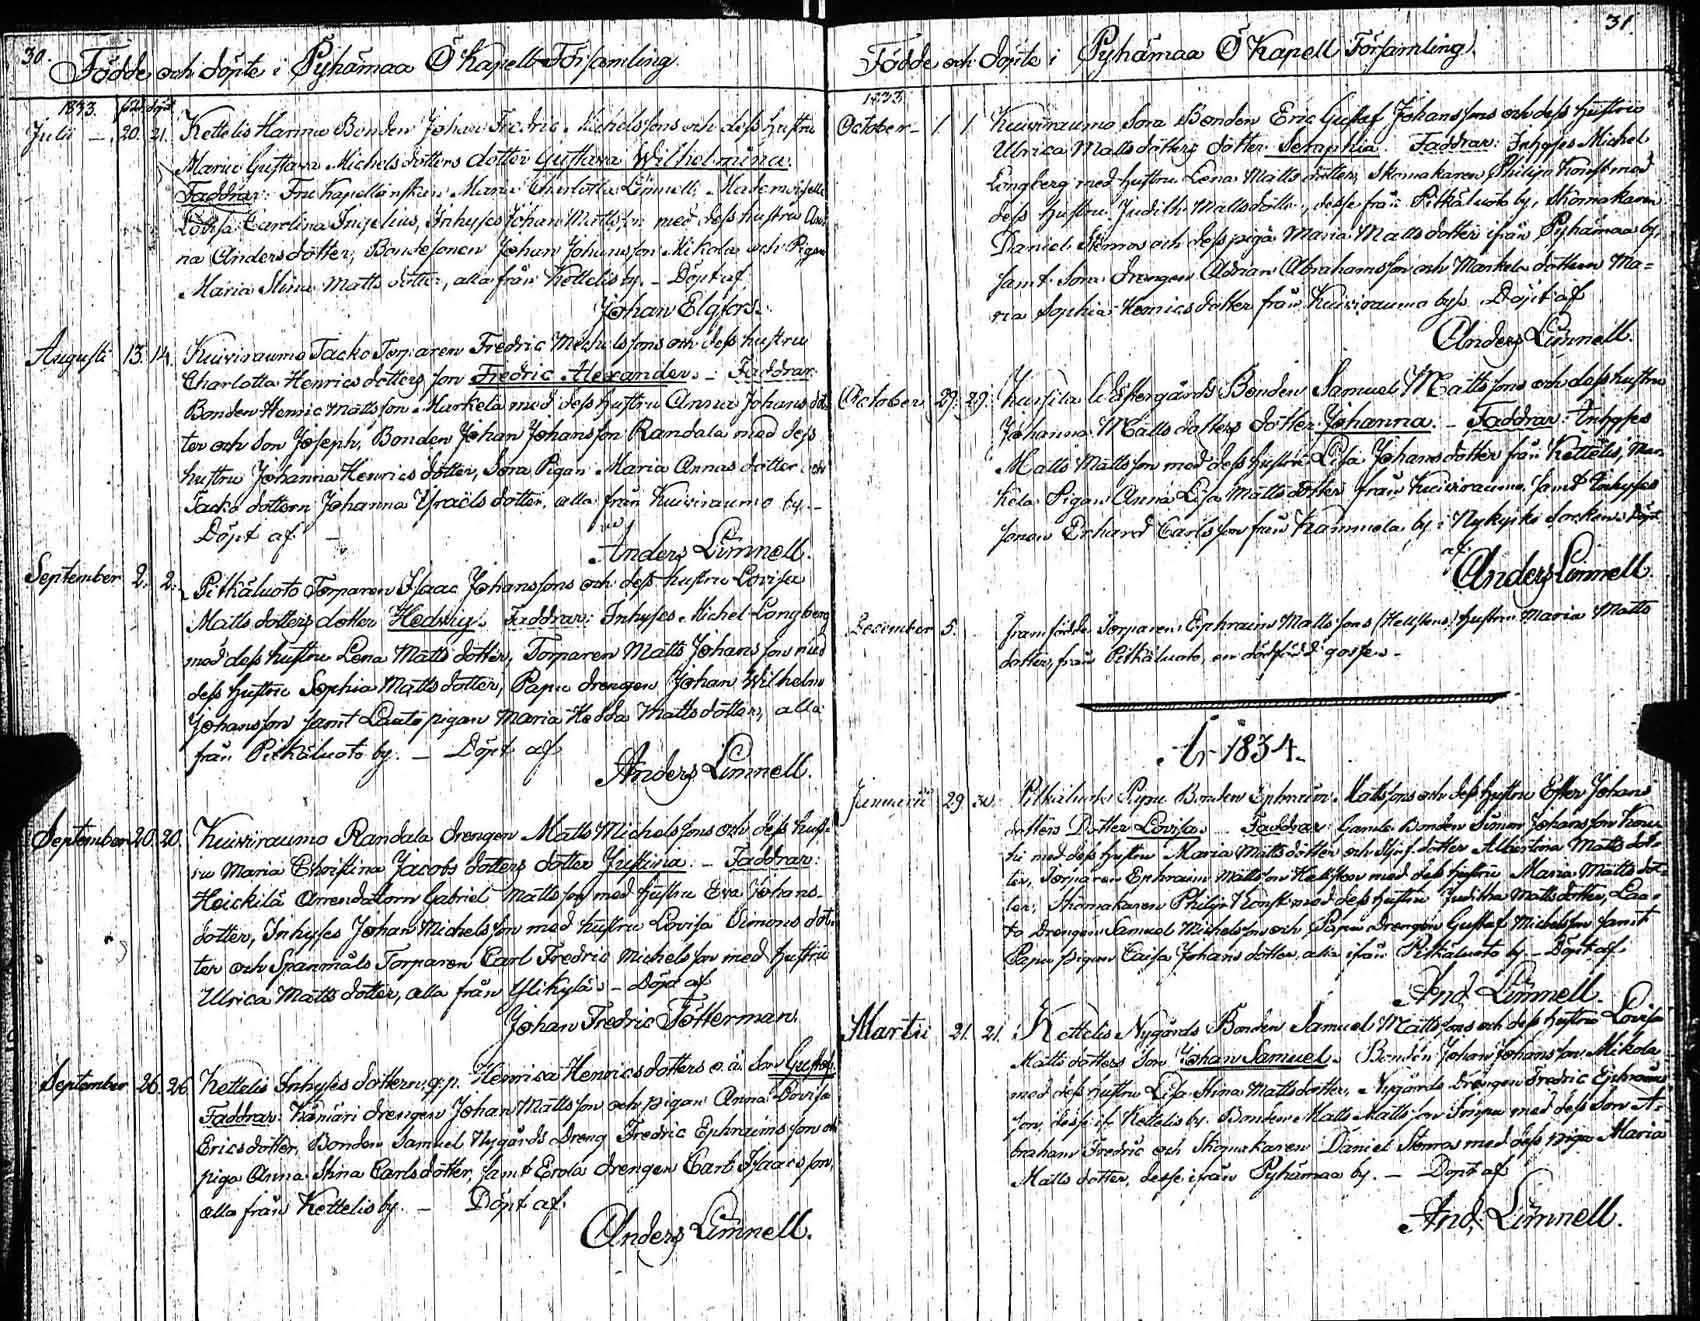 30.
Födde och döpte i Pyhämaa Ö Kapell Församling.
1833. född döpt
Julii — 20. 21. Kettelis Harmu Bonden Johan Fredric Michelssons och dess hustru
Maria Gustava Michels dotters dotter Gustava Wilhelmina.
Faddrar: Fru kapellanskan Maria Charlotta Limnell, Mademoiselle
Lovisa Carolina Ingelius, Inhyses Johan Mattsson med dess hustru An-
na Anders dotter, Bondesonen Johan Johansson Mikola och Pigan
Maria Stina Matts dotter, alla från Kettelis by. — Döpt af
Johan Elgfors.
Augusti 13. 14. Kuivirauma Jacko Torparen Fredric Michelssons och dess hustru
Charlotta Henrics dotters son Fredric Alexander. — Faddrar:
Bonden Henric Mattsson Markela med dess hustru Anna Johans dot-
ter och son Joseph, Bonden Johan Johansson Randala med dess
hustru Johanna Henrics dotter, Sora Pigan Maria Annas dotter och
Jacko dottern Johanna Ysraels dotter, alla från Kuiviraumo by. —
Döpt af —
Anders Limnell.
September 2. 2. Pitkäluoto Torparen Isaac Johanssons och dess hustru Lovisa
Matts dotters dotter Hedvig. Faddrar: Inhyses Michel Longberg
med dess hustru Lena Matts dotter, Torparen Matts Johansson med
dess hustru Sophia Matts dotter, Papu drengen Johan Wilhelm
Johansson samt Laato pigan Maria Hedda Matts dotter, alla
från Pitkäluoto by. — Döpt af
Anders Limnell.
September 20. 20. Kuiviraumo Randala drengen Matts Michelssons och dess hust-
ru Maria Christina Jacobs dotters dotter Justina. — Faddrar:
Heickilä Arrendatorn Gabriel Mattsson med hustru Eva Johans-
dotter, Inhyses Johan Michelsson med hustru Lovisa Simons dot-
ter och Spanmåls Torparen Carl Fredric Michelsson med hustru
Ulrica Matts dotter, alla från Ylikylä. — Döpt af
Johan Fredric Totterman.
September 26. 26. Kettelis Inhyses dottern, q. p. Henrica Henrics dotters o. ä. Son Gustaf.
Faddrar: Kämäri drengen Johan Mattsson och pigan Anna Lovisa
Erics dotter, Bonden Samuel Nygårds dreng Fredric Ephraimsson och
piga Anna Stina Carls dotter, samt Erola drengen Carl Isaacsson,
alla från Kettelis by. — Döpt af
Anders Limnell.
31.
Födde och döpte i Pyhämaa Ö Kapell Församling.
1833
October — 1. 1. Kuiviraumo Sora Bonden Eric Gustaf Johanssons och dess hustru
Ulrica Matts dotters dotter Seraphia. Faddrar: Inhyses Michel
Longberg med hustru Lena Matts dotter, Skomakaren Philip Konst med
dess hustru Judith Matts dotter, desse från Pitkäluoto by, Skomakaren
Daniel Stenroos och dess piga Maria Matts dotter ifrån Pyhämaa by,
samt Sora drengen Adrian Abrahamsson och Markela dottern Ma-
ria Sophia Henrics dotter från Kuiviraumo by. Döpt af
Anders Limnell.
October 29. 29. Bonden Samuel Mattssons och dess hustru
Johanna Matts dotters dotter Johanna. — Faddrar: Inhyses
Matts Mattsson med dess hustru Lisa Johans dotter från Kettelis, Mar-
kela Pigan Anna Lisa Matts dotter från Kuiviraumo, samt Inhyses
sonen Erhard Carlsson från Kammela by i Nykyrko Socken. Döpt
af
Anders Limnell
December 5. Framfödde Torparen Ephraim Mattssons (Hellstens) hustru Maria Matts
dotter, från Pitkäluoto, en dödfödd gosse. —
År 1834.
Januarii 29. 30. Pitkäluoto Papu Bonden Ephraim Mattssons och dess hustru Ester Johans
dotters Dotter Lovisa. Faddrar: Gamla Bonden Simon Johansson
med dess hustru Maria Matts dotter och Styf dotter Albertina Matts dot-
ter, Torparen Ephraim Mattsson Hellsten med dess hustru Maria Matts dot-
ter, Skomakaren Philip Konst med dess hustru Juditha Matts dotter, Laa-
to drengen Samuel Michelsson och Papu drengen Gustaf Michelsson samt
Papu Pigan Caisa Johans dotter, alla ifrån Pitkäluoto by. — Döpt af
And. Limnell.
Martii 21. 21. Kettelis Nygårds Bonden Samuel Mattssons och dess hustru Lovisa
Matts dotters Son Johan Samuel. Bonden Johan Johansson Mikola
med dess hustru Lisa Stina Matts dotter, Nygårds drengen Fredric Ephraims-
son, desse if. Kettelis by. Bonden Matts Mattsson Simpu med dess son A-
braham Fredric och Skomakaren Daniel Stenroos med dess piga Maria
Matts dotter, desse ifrån Pyhämaa by. — Döpt af
And. Limnell.